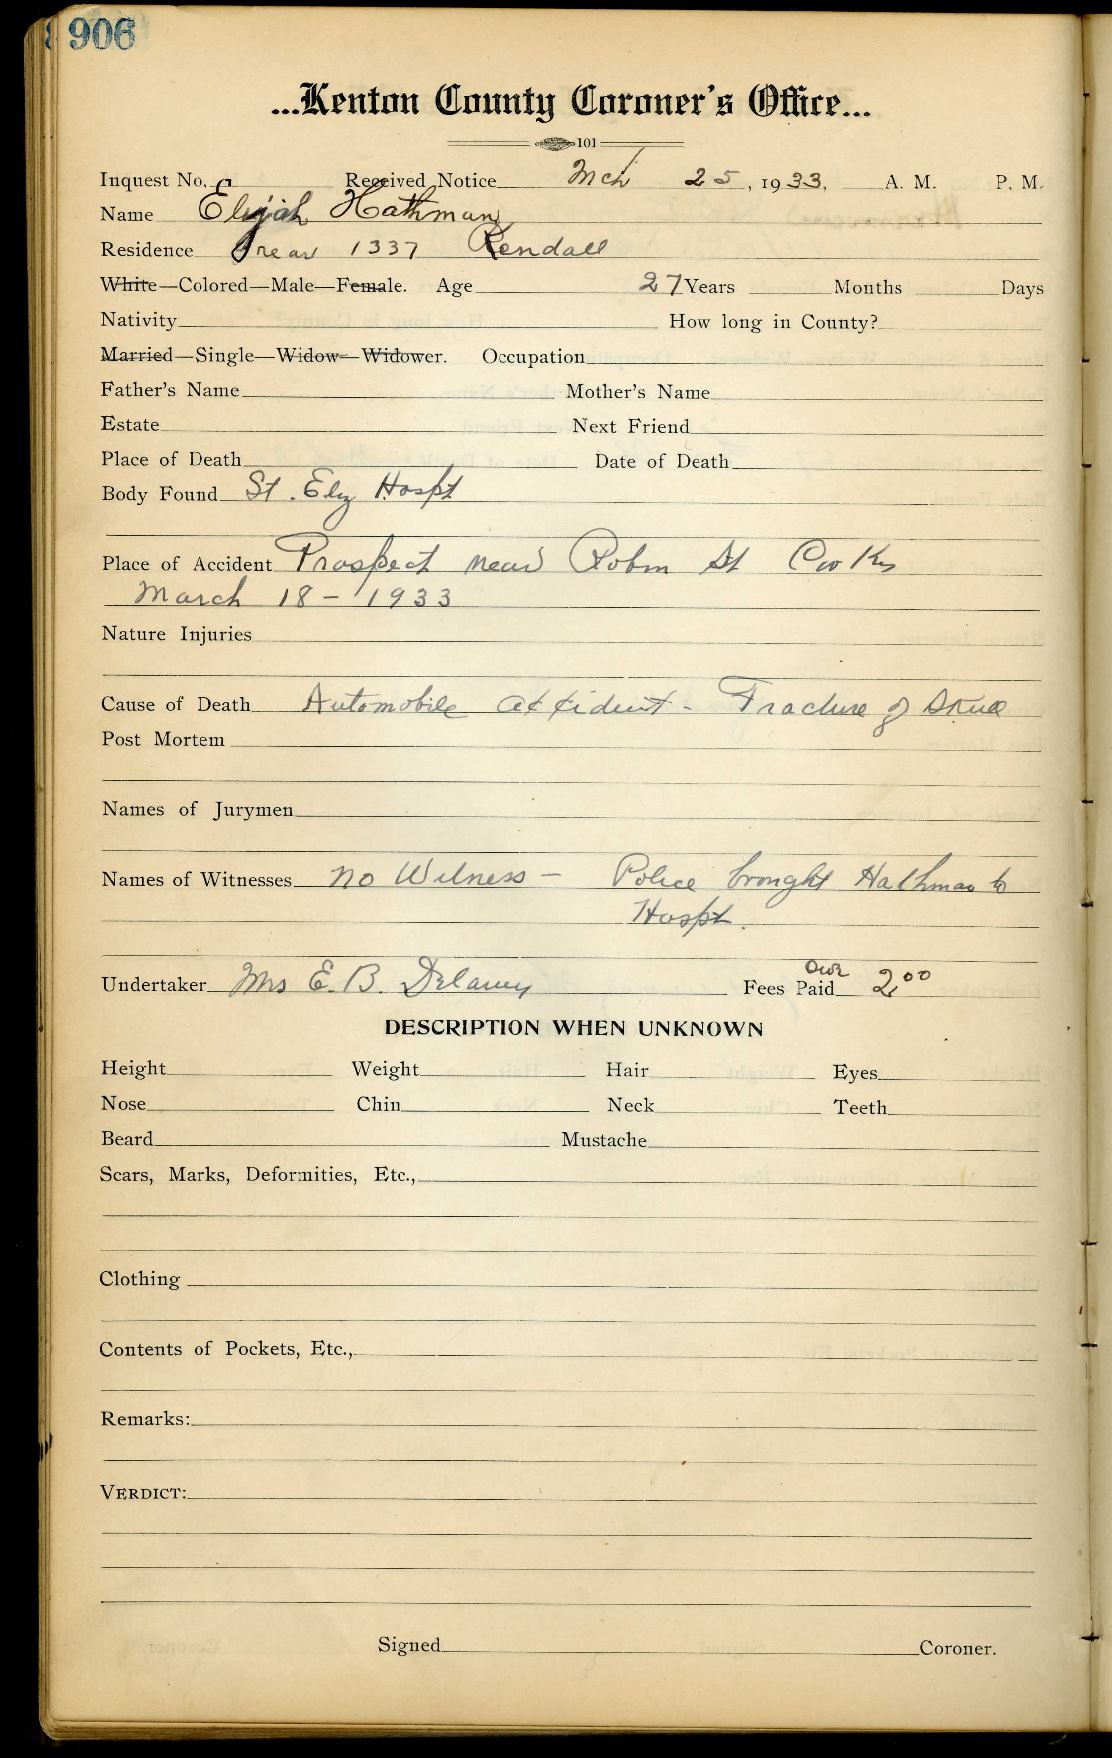 906
...Kenton County Coroner's Office...
101
Inquest No. Received Notice Mch 25, 1933, A. M. P. M.
Name Elijah Hathman
Residence rear 1337 Kendall
White—Colored—Male—Female. Age 27 Years Months Days
Nativity How long in County?
Married—Single—Widow—Widower. Occupation
Father's Name Mother's Name
Estate Next Friend
Place of Death Date of Death
Body Found St. Eliz Hospt
Place of Accident Prospect near Robin St Cov Ky
March 18 - 1933
Nature Injuries
Cause of Death Automobile accident - Fracture of Skull
Post Mortem
Names of Jurymen
Names of Witnesses no Witness - Police brought Hathman to
Hospt.
Undertaker Mrs E. B. Delaney Fees Paid Owe 2 00
DESCRIPTION WHEN UNKNOWN
Height Weight Hair Eyes
Nose Chin Neck Teeth
Beard Mustache
Scars, Marks, Deformities, Etc.,
Clothing
Contents of Pockets, Etc.,
Remarks:
VERDICT:
Signed Coroner.